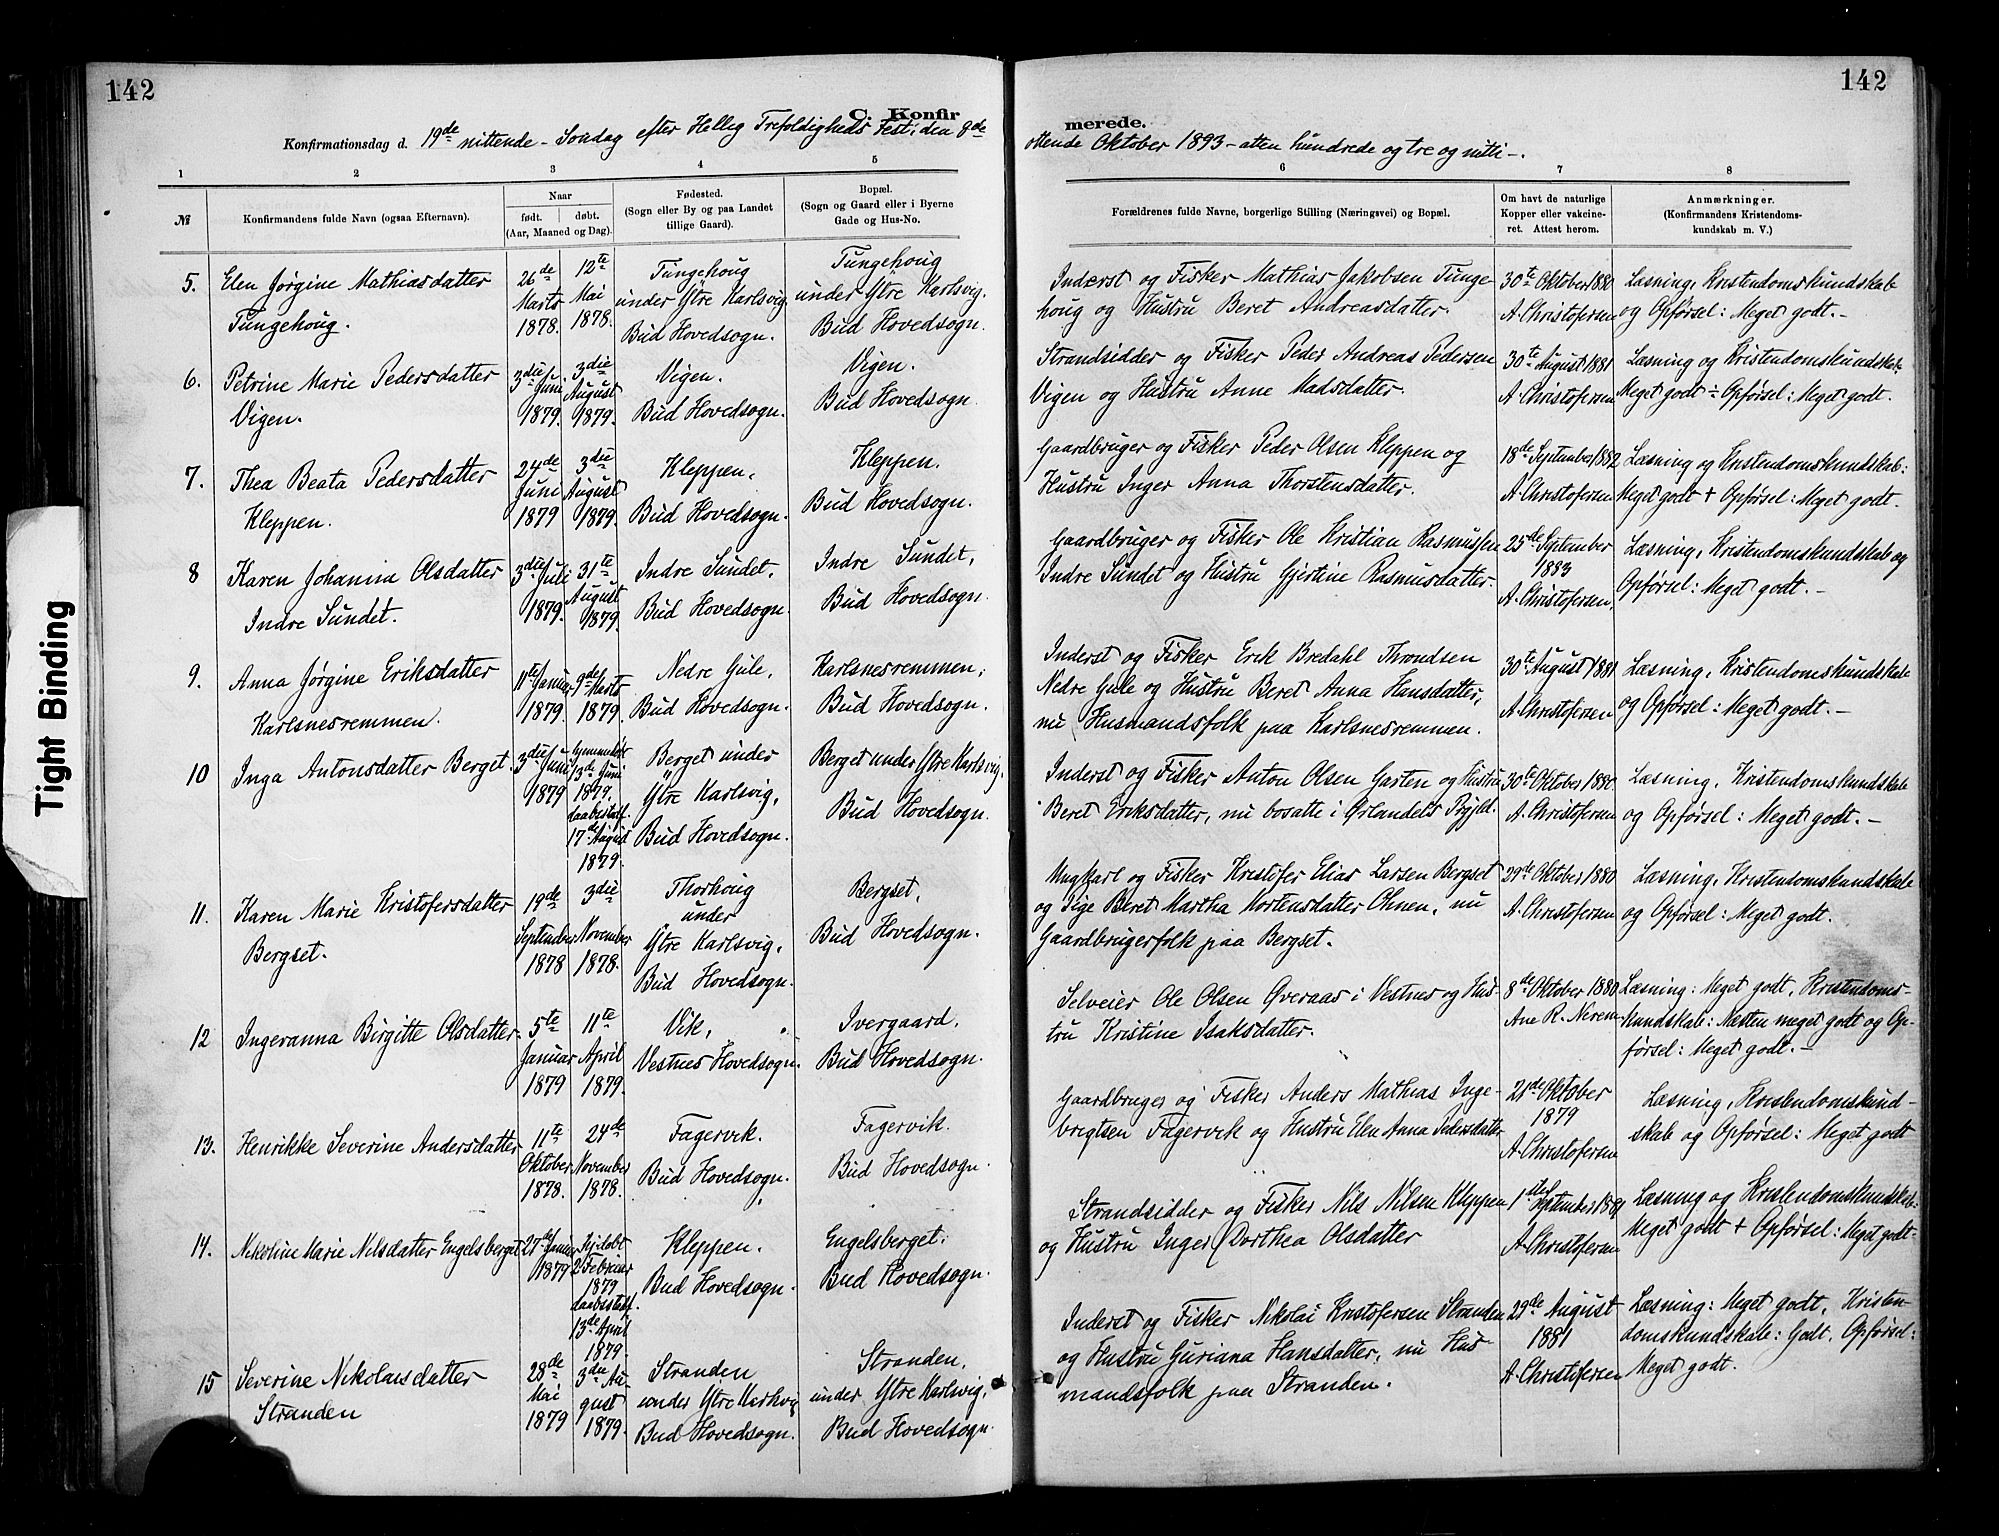 142
C. Konfir
Konfirmationsdag d. 19de nittende - Søndag efter Hellig Trefoldigheds Fest, den 8de
1 2 3 4 5
№
Konfirmandens fulde Navn (ogsaa Efternavn).
Naar
født. døbt.
(Aar, Maaned og Dag).
Fødested.
(Sogn eller By og paa Landet
tillige Gaard).
Bopæl.
(Sogn og Gaard eller i Byerne
Gade og Hus-No.
5. Elen Jørgine Mathiasdatter
Tungehoug.
26de
Marts
1878.
12te
Mai
1878.
Tungehoug
under Ytre Karlsvig,
Bud Hovedsogn.
Tungehoug
under Ytre Karlsvig.
Bud Hovedsogn.
6. Petrine Marie Pedersdatter
Vigen.
3die Juni
1879
3die
August
1879.
Vigen.
Bud Hovedsogn.
Vigen.
Bud Hovedsogn.
7. Thea Beata Pedersdatter
Kleppen.
24de
Juni
1879
3die
August
1879.
Kleppen,
Bud Hovedsogn.
Kleppen.
Bud Hovedsogn.
8 Karen Johanna Olsdatter
Indre Sundet.
3die Juli
1879.
31te
August
1879.
Indre Sundet,
Bud Hovedsogn.
Indre Sundet,
Bud Hovedsogn.
9. Anna Jørgine Eriksdatter
Karlsnesremmen.
11te Januar
1879.
9de Marts
1879.
Nedre Gule,
Bud Hovedsogn.
Karlsnesremmen,
Bud Hovedsogn.
10 Inga Antonsdatter Berget.
3die Juni
1879
hjemmedøbt
13de Juni
1879.
daabstadf.
17de August
1879.
Berget under
Ytre Karlsvig,
Bud Hovedsogn.
Berget under Ytre Karlsvig,
Bud Hovedsogn.
11. Karen Marie Kristofersdatter
Bergset.
19de
September
1878
3die
November
1878.
Thorhoug
under
Ytre Karlsvig,
Bud Hovedsogn.
Bergset,
Bud Hovedsogn.
12 Ingeranna Birgitte Olsdatter.
5te
Januar
1879
11te
April
1879.
Vik,
Vestnes Hovedsogn.
Ivergaard,
Bud Hovedsogn.
13. Henrikke Severine Andersdatter
11te
Oktober
1878.
24de
November
1878.
Fagervik.
Bud Hovedsogn.
Fagervik.
Bud Hovedsogn.
14. Nikoline Marie Nilsdatter Engelsberget
27de Januar
1879
Hjdøbt
2 Februar
1879
daabsstadf.
13de April
1879.
Kleppen.
Bud Hovedsogn.
Engelsberget.
Bud Hovedsogn.
15 Severine Nikolaisdatter
Stranden
28de
Mai
1879
3die Au-
gust
1879.
Stranden
under Ytre Karlsvig
Bud Hovedsogn.
Stranden,
under Ytre Karlsvig,
Bud Hovedsogn.
142
merede.
ottende Oktober 1893 - atten hundrede og tre og nitti -.
6 7 8
Forældrenes fulde Navne, borgerlige Stilling (Næringsvei) og Bopæl.
Om havt de naturlige
Kopper eller vakcine-
ret. Attest herom.
Anmærkninger.
(Konfirmandens Kristendoms-
kundskab m. V.)
Inderst og Fisker Mathias Jakobsen Tunge-
houg og Hustru Beret Andreasdatter.
30te Oktober 1880
A. Christofersen
Læsning, Kristendomskundskab
og Opførsel: Meget godt. -
Strandsidder og Fisker Peder Andreas Pedersen
Vigen og Hustru Anne Madsdatter.
30te August 1881
A. Christofersen
Læsning og Kristendomskundskab
Meget godt ÷ Opførsel: Meget godt.
Gaardbruger og Fisker Peder Olsen Kleppen og
Hustru Inger Anna Thorstensdatter.
18de September 1882
A. Christofersen
Læsning og Kristendomskundskab:
Meget godt + Opførsel: Meget godt.
Gaardbruger og Fisker Ole Kristian Rasmussen
Indre Sundet og Hustru Gjertine Rasmusdatter.
25de September
1883
A. Christofersen
Læsning, Kristendomskundskab og
Opførsel: Meget godt. -
Inderst og Fisker Erik Bredahl Throndsen
Nedre Gule og Hustru Beret Anna Hansdatter,
nu Husmandsfolk paa Karlsnesremmen.
30te August 1881
A. Christofersen
Læsning, Kristendomskundskab
og Opførsel: Meget godt. -
Inderst og Fisker Anton Olsen Garten og Hustru
Beret Eriksdatter, nu bosatte i Ørlandets Prgjld.
30te Oktober 1880
A. Christofersen
Læsning, Kristendomskundskab
og Opførsel: Meget godt. -
Ungkarl og Fisker Kristofer Elias Larsen Bergset
og Pige Beret Martha Mortensdatter Ohnen, nu
Gaardbrugerfolk paa Bergset.
29de Oktober 1880
A. Christofersen
Læsning, Kristendomskundskab
og Opførsel: Meget godt.
Selveier Ole Olsen Øveraas i Vestnes og Hus-
tru Kristine Isaksdatter.
8de Oktober 1880
Ane R. Nerem
Læsning: Meget godt, Kristendoms-
kundskab: Næsten meget godt og Op-
førsel: Meget godt. -
Gaardbruger og Fisker Anders Mathias Inge-
brigtsen Fagervik og Hustru Elen Anna Pedersdatter
21de Oktober
1879
A. Christofersen
Læsning, Kristendomskund-
skab og Opførsel: Meget godt
Strandsidder og Fisker Nils Nilsen Kleppen
og Hustru Inger Dorthea Olsdatter
1ste September 1881
A. Christofersen
Læsning og Kristendomskundskab:
Meget godt + Opførsel: Meget godt.
Inderst og Fisker Nikolai Kristofersen Stranden
og Hustru Guriana Hansdatter, nu Hus-
mandsfolk paa Stranden.
29de August
1881
A. Christofersen
Læsning: Meget godt, Kristen-
domskundskab: Godt, Opførsel:
Meget godt.
Tight Binding